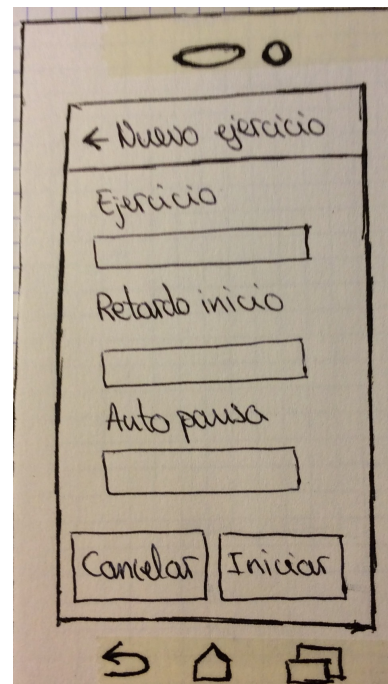 ← Nuevo ejercicio
Ejercicio
Retardo inicio
Auto pausa
Cancelar Iniciar